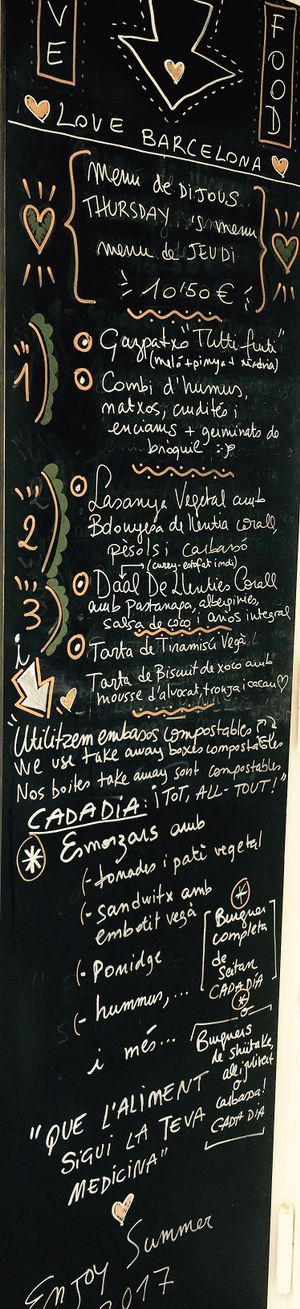 VE
FOOD
LOVE BARCELONA
menu de DIJOUS
THURSDAY 's menu
menu de JEUDI
10'50€
1
Gazpatxo "Tutti fruti"
(meló+pinya+síndria)
Combi d'humus,
natxos, crudités i
enciams + germinats de
broquil
2
Lasanya Vegetal amb
Bolonyesa de llentia corall,
pèsols i carbassó
(curry-estofat indi)
3
Daal De llenties Corall
amb Pastanaga, albergínies,
salsa de coco i arròs integral
i
Tarta de Tiramisú Vegà!
Tarta de Biscuit de xoco amb
mousse d'alvocat, taronja i cacau
"Utilitzem embasos compostables
We use take away boxes compostables
Nos boites take away sont compostables
¡TOT, ALL-TOUT!"
CADA DIA:
* Esmorzars amb
(- torrades i paté vegetal
(- sandwitx amb
embotit vegà
(- Porridge
(- hummus,...
i més...
*
Burguer
completa
de
Seitan
CADA DIA
*
Burguers
de shiitake,
all i julivert
o
carbassa!
CADA DIA
"QUE L'ALIMENT
SIGUI LA TEVA
MEDICINA"
ENJOY Summer
2017